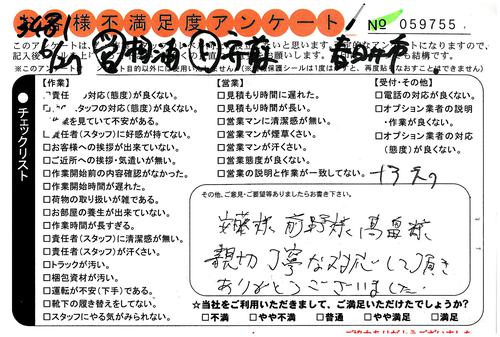 お客様不満足度アンケート
№ 059755
【作業】
責任 対応(態度)が良くない。
スタッフの対応(態度)が良くない。
業を見ていて不安がある。
責任者(スタッフ)に好感が持てない。
□お客様への挨拶が出来ていない。
□ご近所への挨拶・気遣いが無い。
□作業開始前の内容確認がなかった。
□作業開始時間が遅れた。
□荷物の取り扱いが雑である。
□お部屋の養生が出来ていない。
□作業時間が長すぎる。
□責任者(スタッフ)に清潔感が無い。
□責任者(スタッフ)が汗くさい。
□トラックが汚い。
□梱包資材が汚い。
□運転が不安(下手)である。
□靴下の履き替えをしてない。
□スタッフにやる気がみられない。
【営業】
□見積もり時間に遅れた。
□見積もり時間が長い。
□営業マンに清潔感が無い。
□営業マンが煙草くさい。
□営業マンが汗くさい。
□営業態度が良くない。
□営業の説明と作業が一致してない。
【受付・その他】
□電話の対応が良くない。
□オプション業者の説明
・作業が良くない。
□オプション業者の対応
(態度)が良くない。
チェックリスト
その他、ご意見・ご要望等ありましたらお書き下さい。
安藤様 前野様 高畠様
親切丁寧な対応して頂き
ありがとうございました。
☆当社をご利用いただきまして、ご満足いただけたでしょうか?
□不満 □やや不満 □普通 □やや満足 □満足